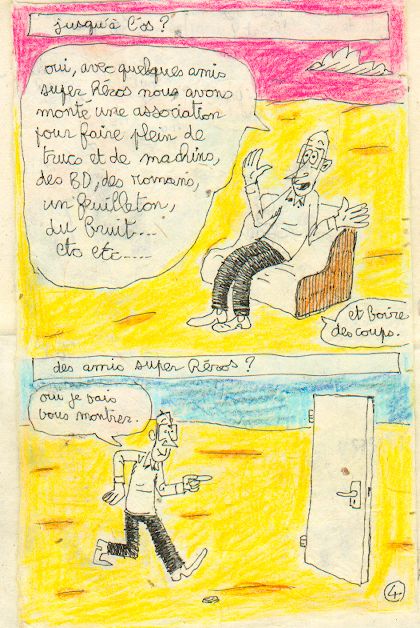 jusqu'à l'os ?
oui, avec quelques amis
super Héros nous avons
monté une association
pour faire plein de
trucs et de machins,
des BD, des romans,
un feuilleton,
du bruit...
etc etc.....
et boire
des coups.
des amis super Héros ?
oui je vais
vous montrer.
4